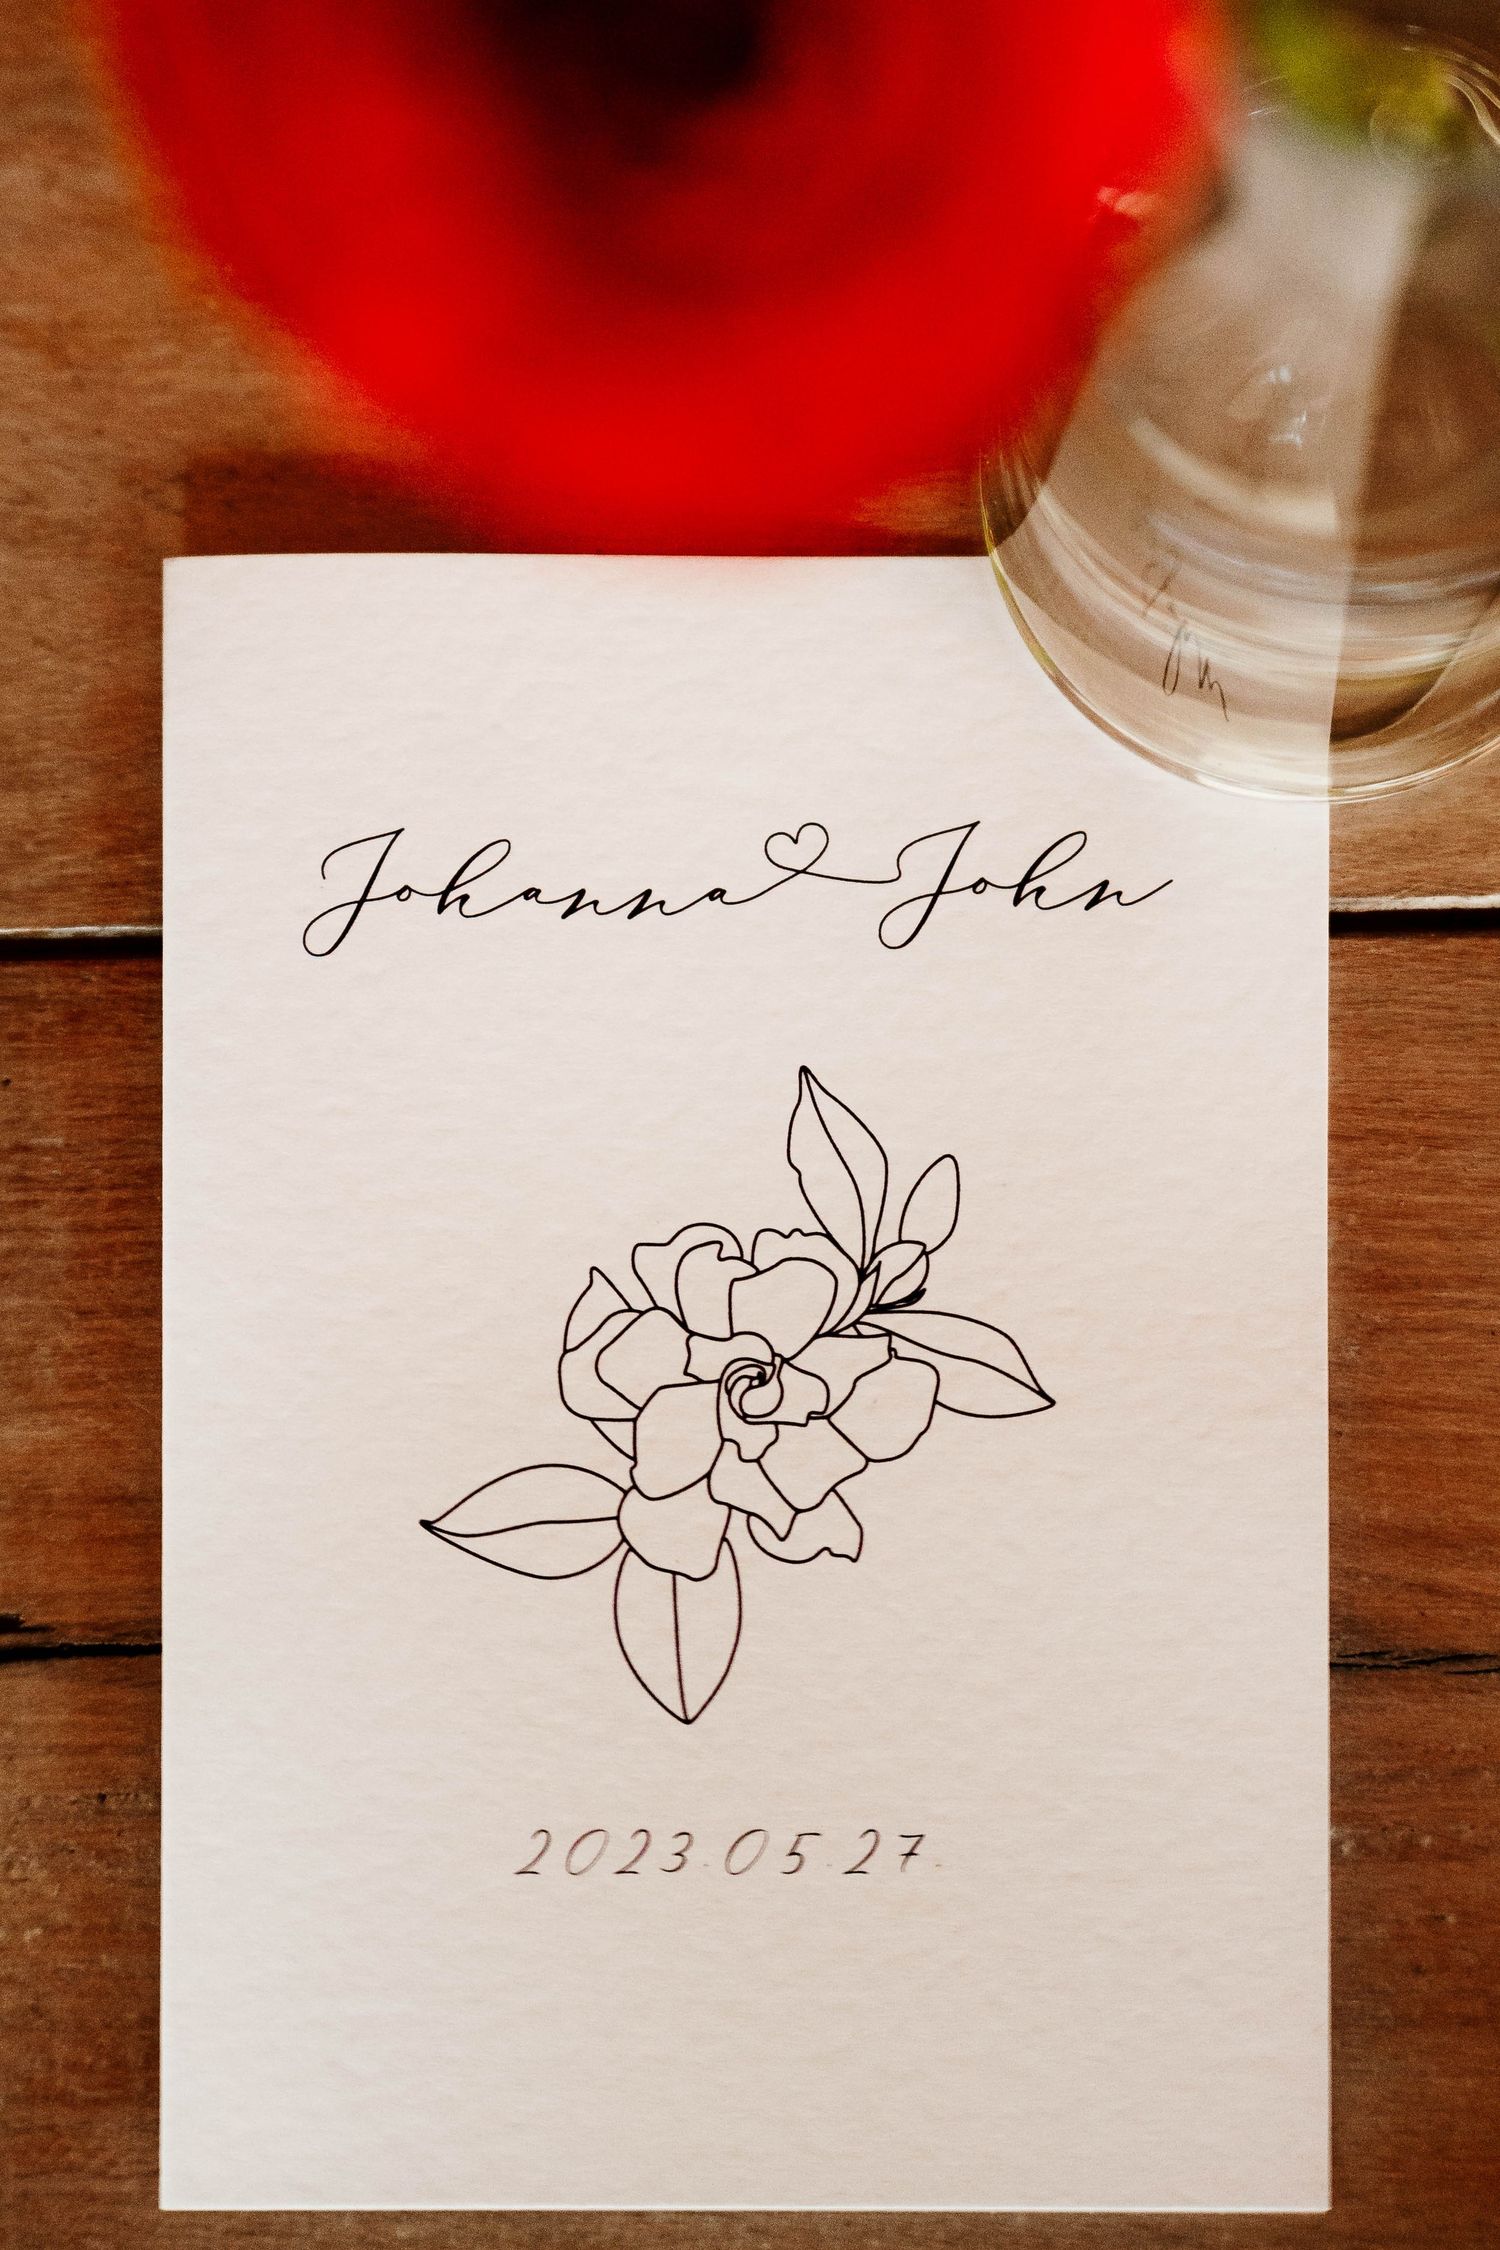 Johanna John
2023.05.27.